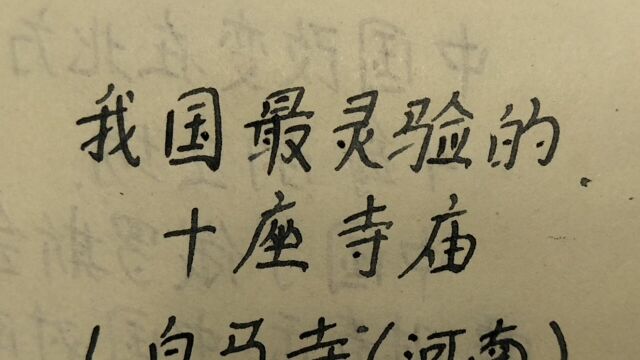 我国最灵验的
十座寺庙
1 白马寺(河南)